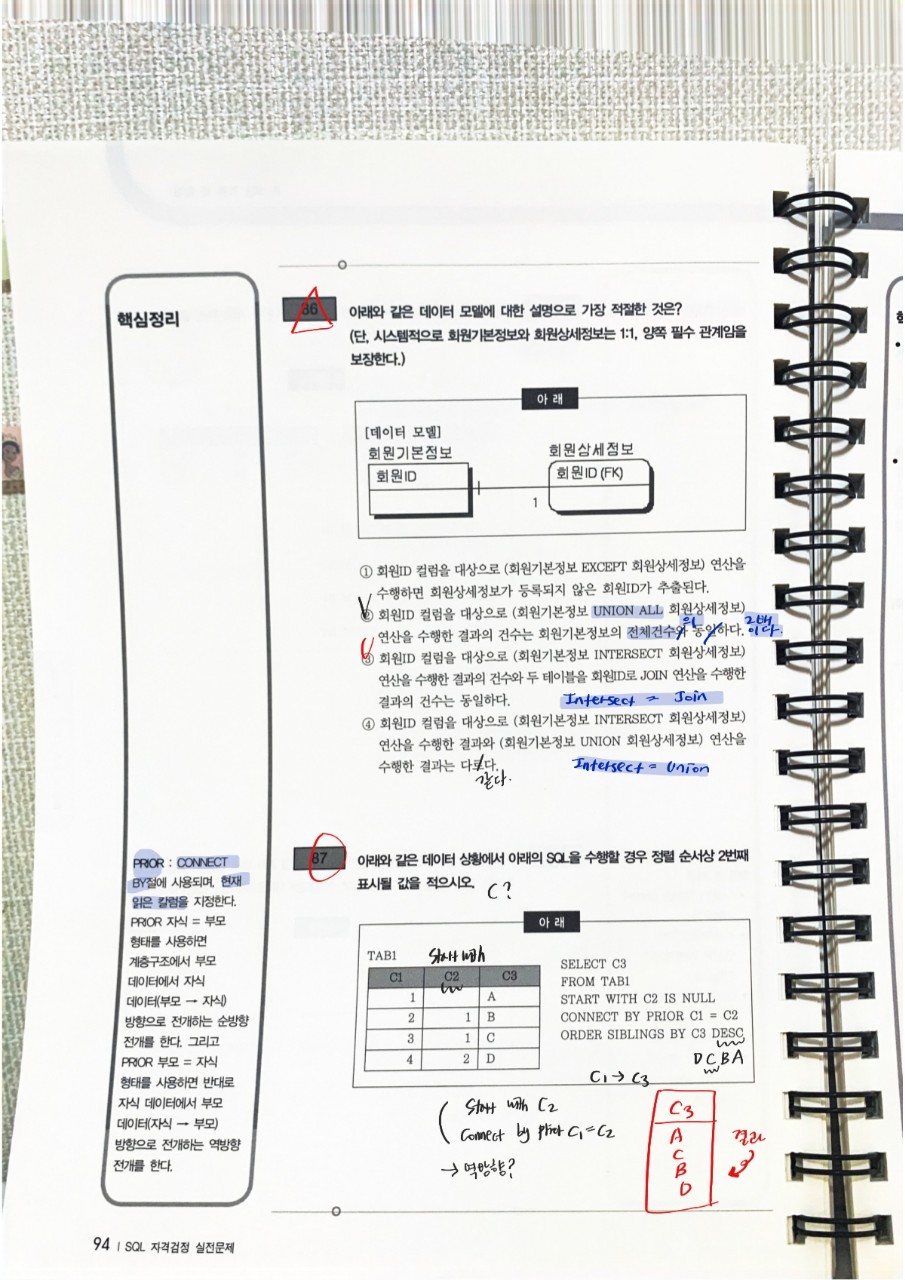 핵심정리
86
아래와 같은 데이터 모델에 대한 설명으로 가장 적절한 것은?
(단, 시스템적으로 회원기본정보와 회원상세정보는 1:1, 양쪽 필수 관계임을
보장한다.)
아 래
[데이터 모델]
회원기본정보
회원상세정보
회원ID
회원ID (FK)
1
① 회원ID 컬럼을 대상으로 (회원기본정보 EXCEPT 회원상세정보) 연산을
수행하면 회원상세정보가 등록되지 않은 회원ID가 추출된다.
② 회원ID 컬럼을 대상으로 (회원기본정보 UNION ALL 회원상세정보)
연산을 수행한 결과의 건수는 회원기본정보의 전체건수와 동일하다.
의
2배
이다.
③ 회원ID 컬럼을 대상으로 (회원기본정보 INTERSECT 회원상세정보)
연산을 수행한 결과의 건수와 두 테이블을 회원ID로 JOIN 연산을 수행한
결과의 건수는 동일하다.
Intersect = Join
④ 회원ID 컬럼을 대상으로 (회원기본정보 INTERSECT 회원상세정보)
연산을 수행한 결과와 (회원기본정보 UNION 회원상세정보) 연산을
수행한 결과는 다르다.
같다.
Intersect = Union
87
아래와 같은 데이터 상황에서 아래의 SQL을 수행할 경우 정렬 순서상 2번째
표시될 값을 적으시오.
C?
아 래
TAB1
Start with
C1 C2 C3
1 A
2 1 B
3 1 C
4 2 D
SELECT C3
FROM TAB1
START WITH C2 IS NULL
CONNECT BY PRIOR C1 = C2
ORDER SIBLINGS BY C3 DESC
D C B A
C1 → C3
Start with C2
Connect by prior C1 = C2
→ 역방향?
C3
A
C
B
D
결과
PRIOR : CONNECT
BY절에 사용되며, 현재
읽은 칼럼을 지정한다.
PRIOR 자식 = 부모
형태를 사용하면
계층구조에서 부모
데이터에서 자식
데이터(부모 → 자식)
방향으로 전개하는 순방향
전개를 한다. 그리고
PRIOR 부모 = 자식
형태를 사용하면 반대로
자식 데이터에서 부모
데이터(자식 → 부모)
방향으로 전개하는 역방향
전개를 한다.
94 | SQL 자격검정 실전문제